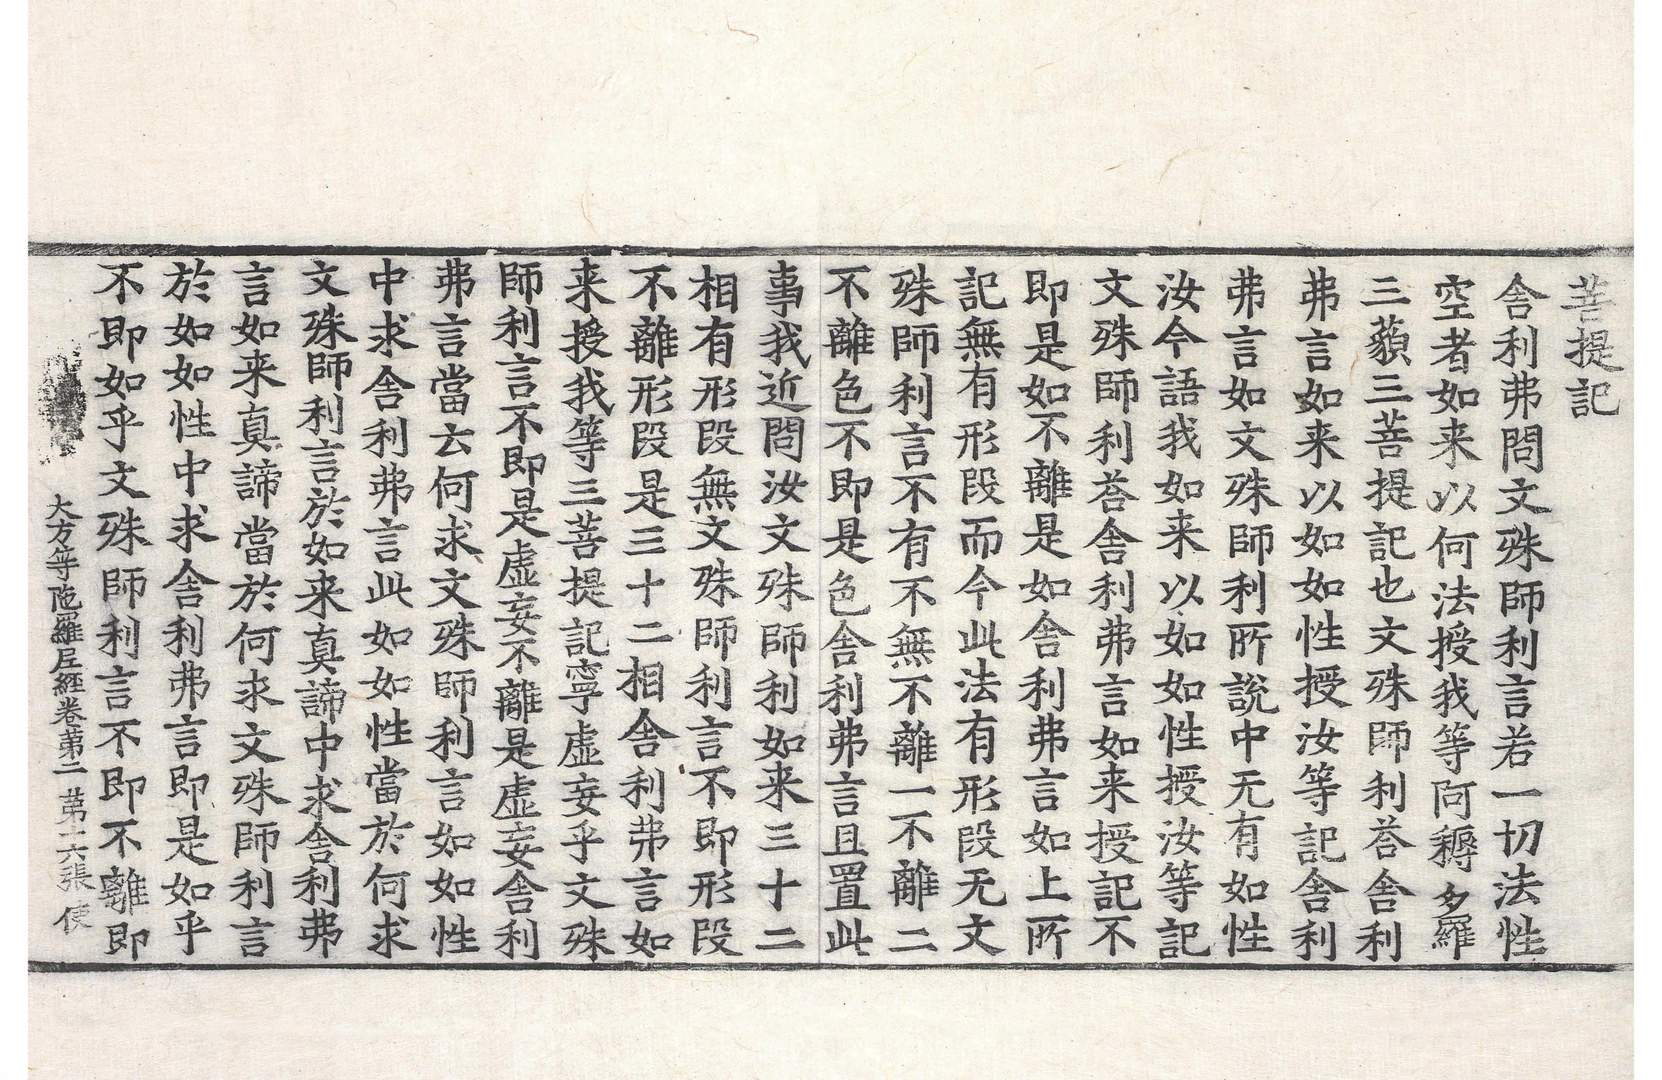 菩提記
舍利弗問文殊師利言若一切法性
空者如来以何法授我等阿耨多羅
三藐三菩提記也文殊師利荅舍利
弗言如来以如如性授汝等記舍利
弗言如文殊師利所說中无有如性
汝今語我如来以如如性授汝等記
文殊師利荅舍利弗言如来授記不
即是如不離是如舍利弗言如上所
記無有形段而今此法有形段无文
殊師利言不有不無不離一不離二
不離色不即是色舍利弗言且置此
事我近問汝文殊師利如来三十二
相有形段無文殊師利言不即形段
不離形段是三十二相舍利弗言如
来授我等三菩提記寧虛妄乎文殊
師利言不即是虛妄不離是虛妄舍利
弗言當云何求文殊師利言如如性
中求舍利弗言此如如性當於何求
文殊師利言於如来真諦中求舍利弗
言如来真諦當於何求文殊師利言
於如如性中求舍利弗言即是如乎
不即如乎文殊師利言不即不離即
大方等陁羅尼經卷第二 第十六張 使